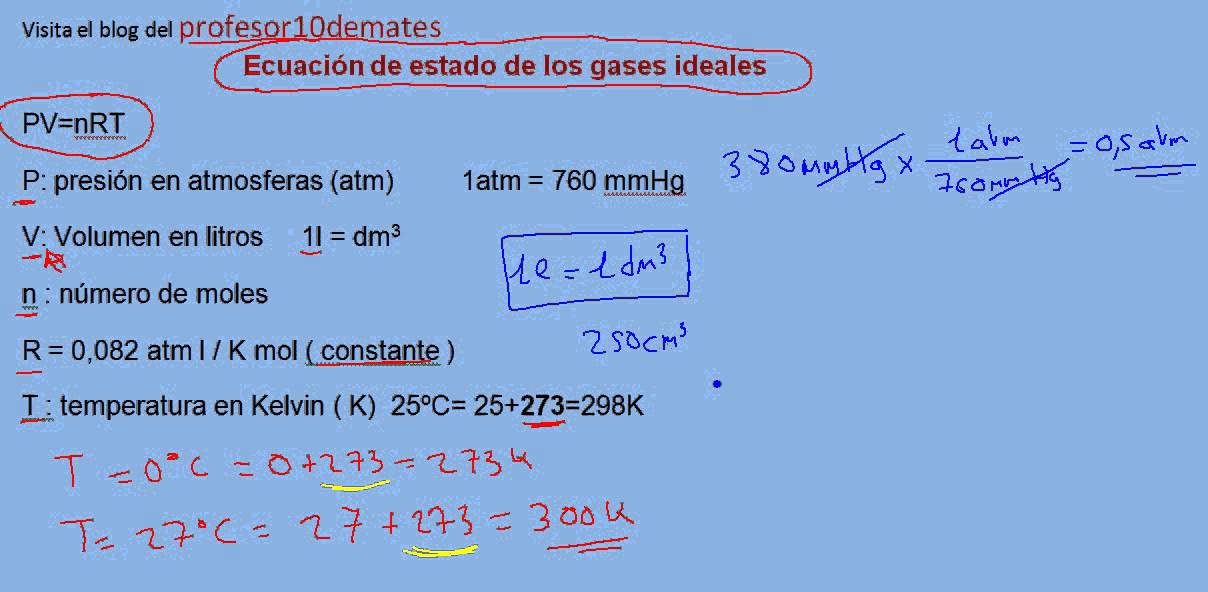 Visita el blog del profesor10demates
Ecuación de estado de los gases ideales
PV=nRT
P: presión en atmosferas (atm) 1atm = 760 mmHg
380mmHg x 1atm / 760mmHg = 0,5atm
V: Volumen en litros 1l = dm³
1l = 1dm³
n : número de moles
250cm³
R = 0,082 atm l / K mol ( constante )
T : temperatura en Kelvin ( K) 25ºC= 25+273=298K
T = 0°C = 0+273 = 273K
T= 27°C = 27+273 = 300K